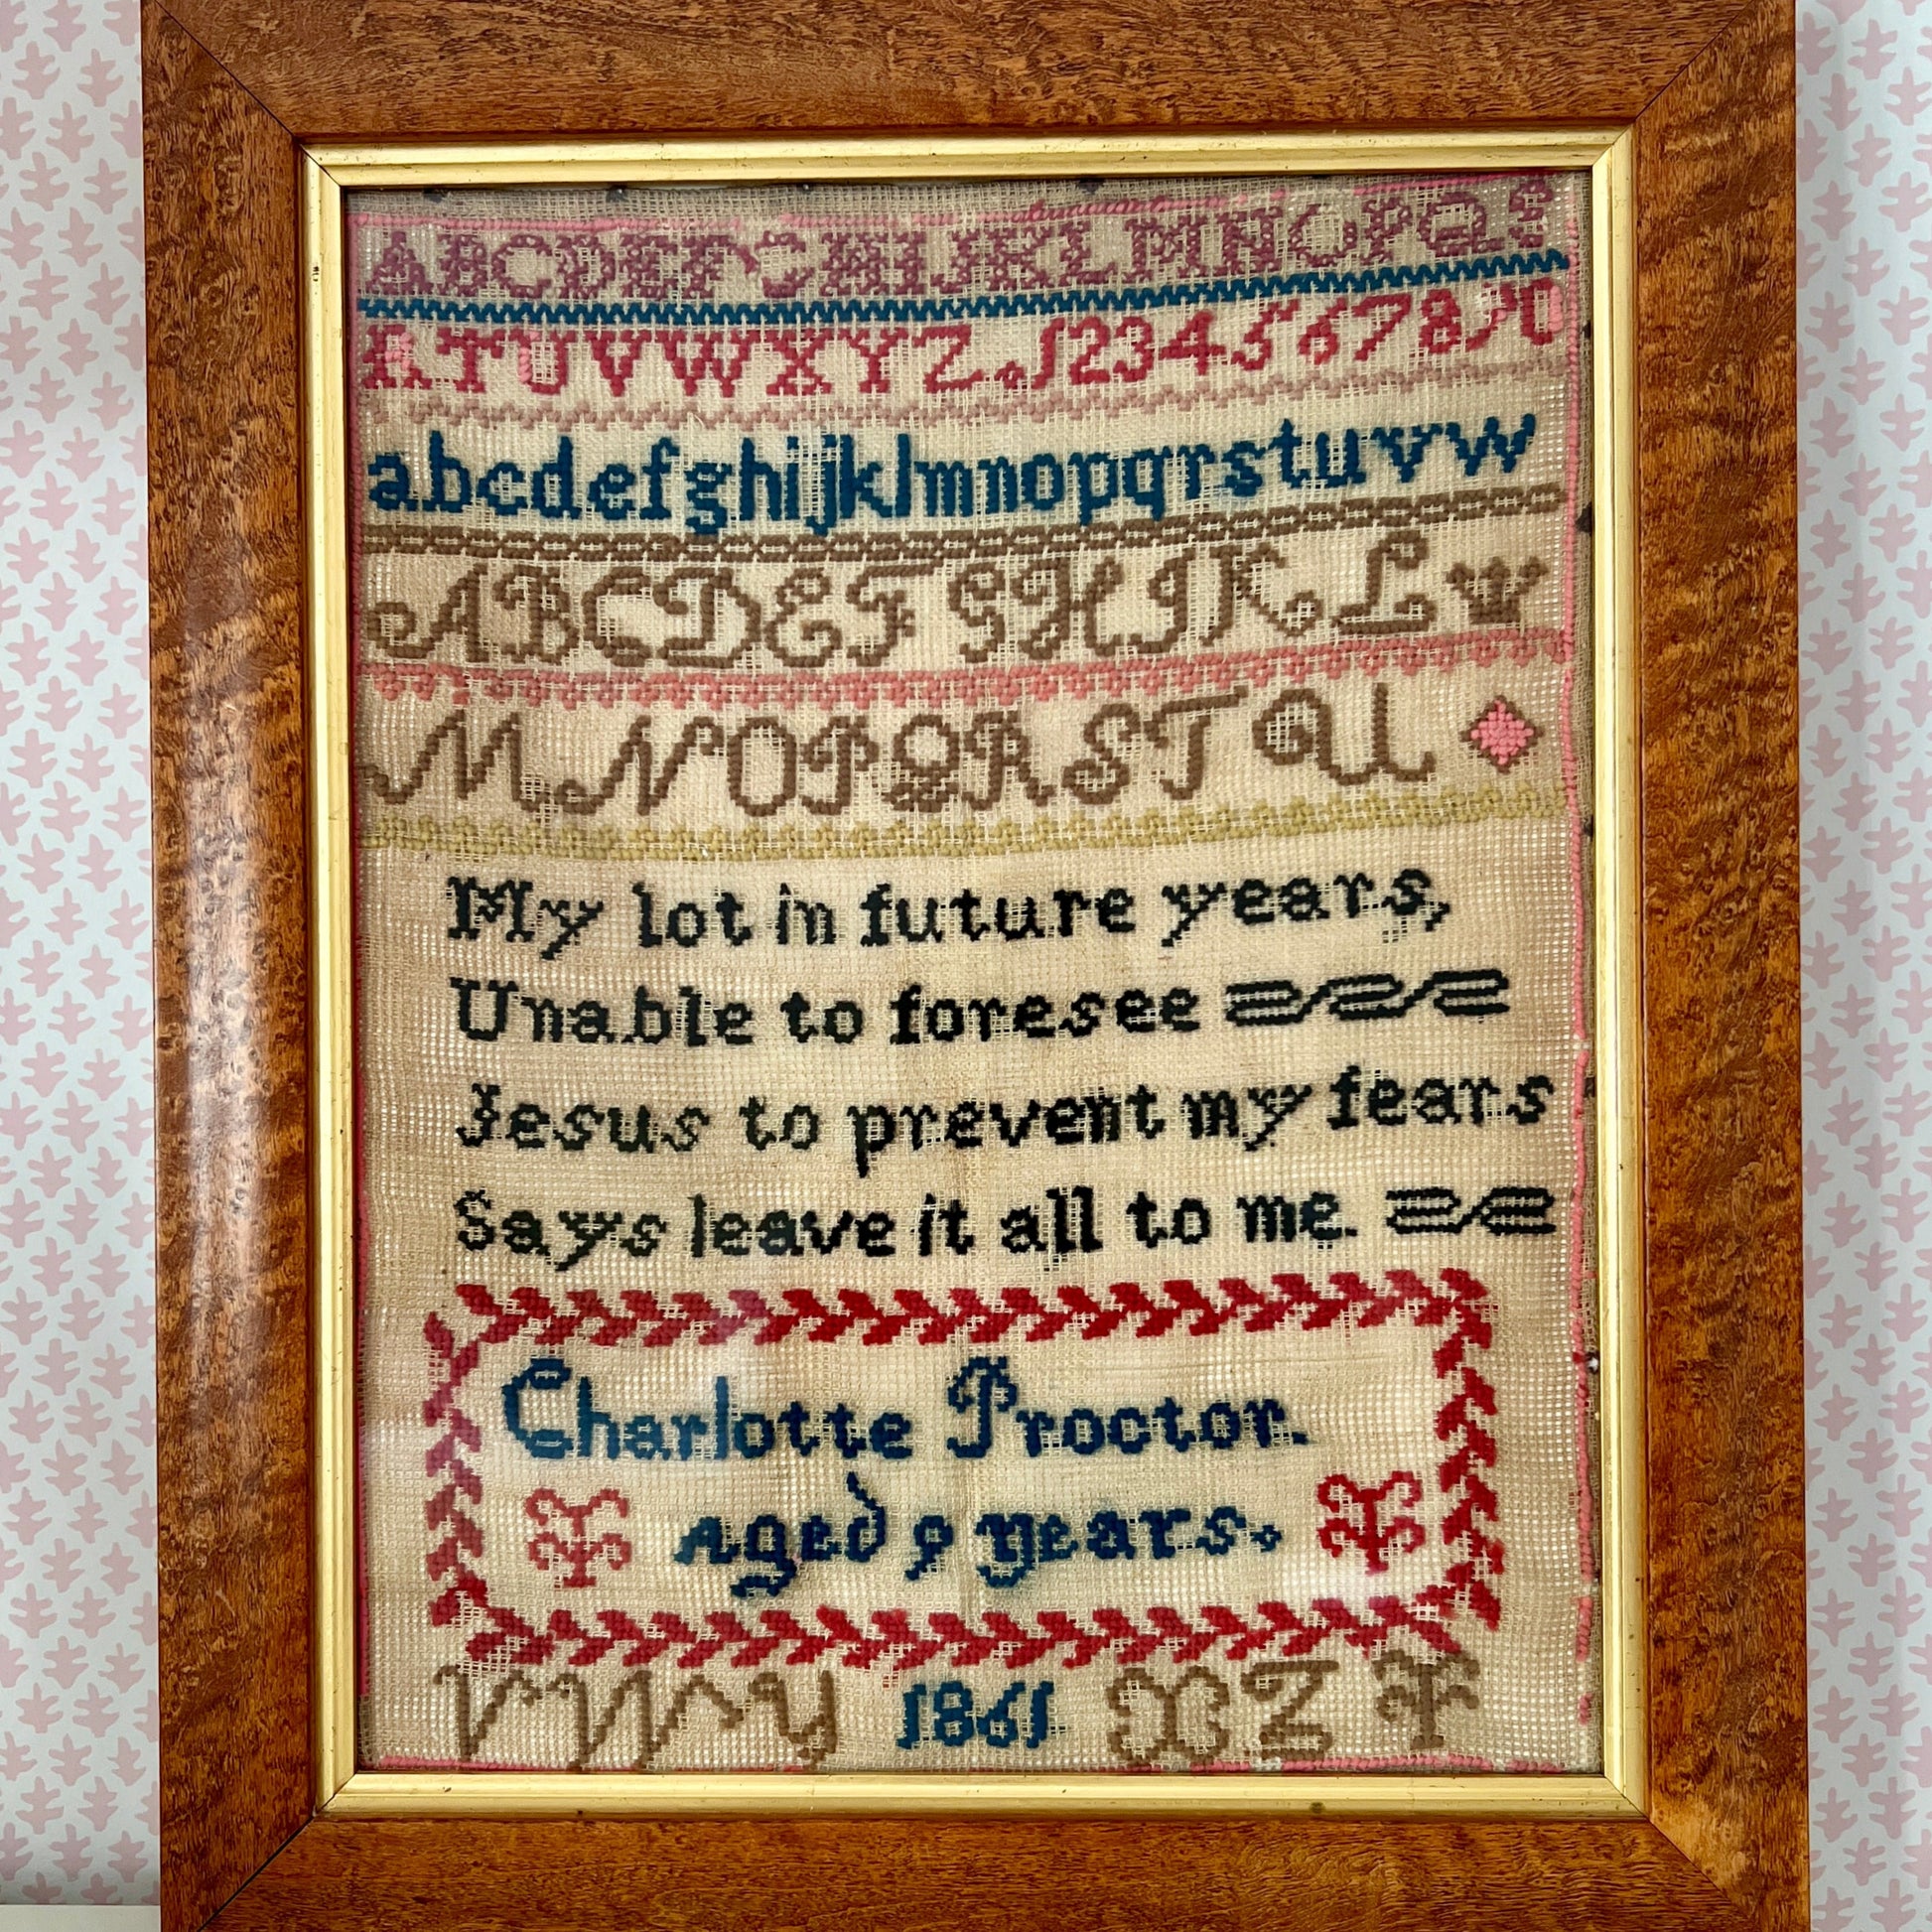 ABCDEFGHIJKLMNOPQS
RTUVWXYZ.1234567890
abcdefghijklmnopqrstuvw
ABCDEFGHIKL
MNOPQRSTU
My lot in future years,
Unable to foresee
Jesus to prevent my fears
Says leave it all to me.
Charlotte Proctor.
Aged 9 years.
VWY 1861 XZ